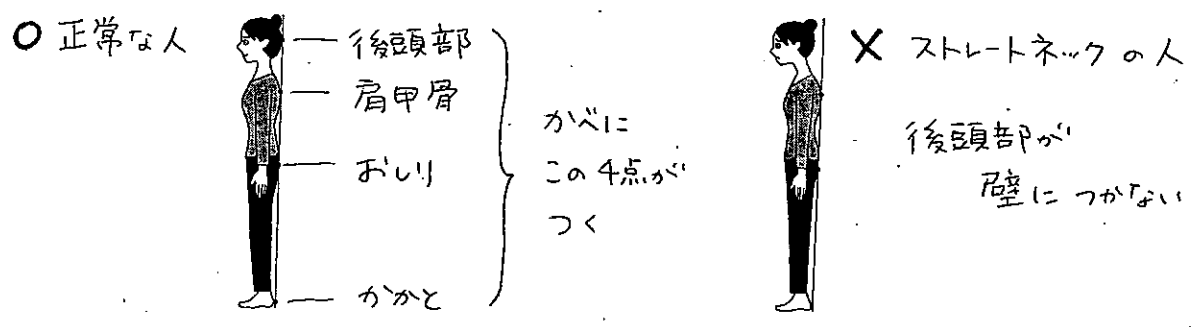 ○ 正常な人
後頭部
肩甲骨
おしり
かかと
かべに
この4点が
つく
× ストレートネックの人
後頭部が
壁につかない